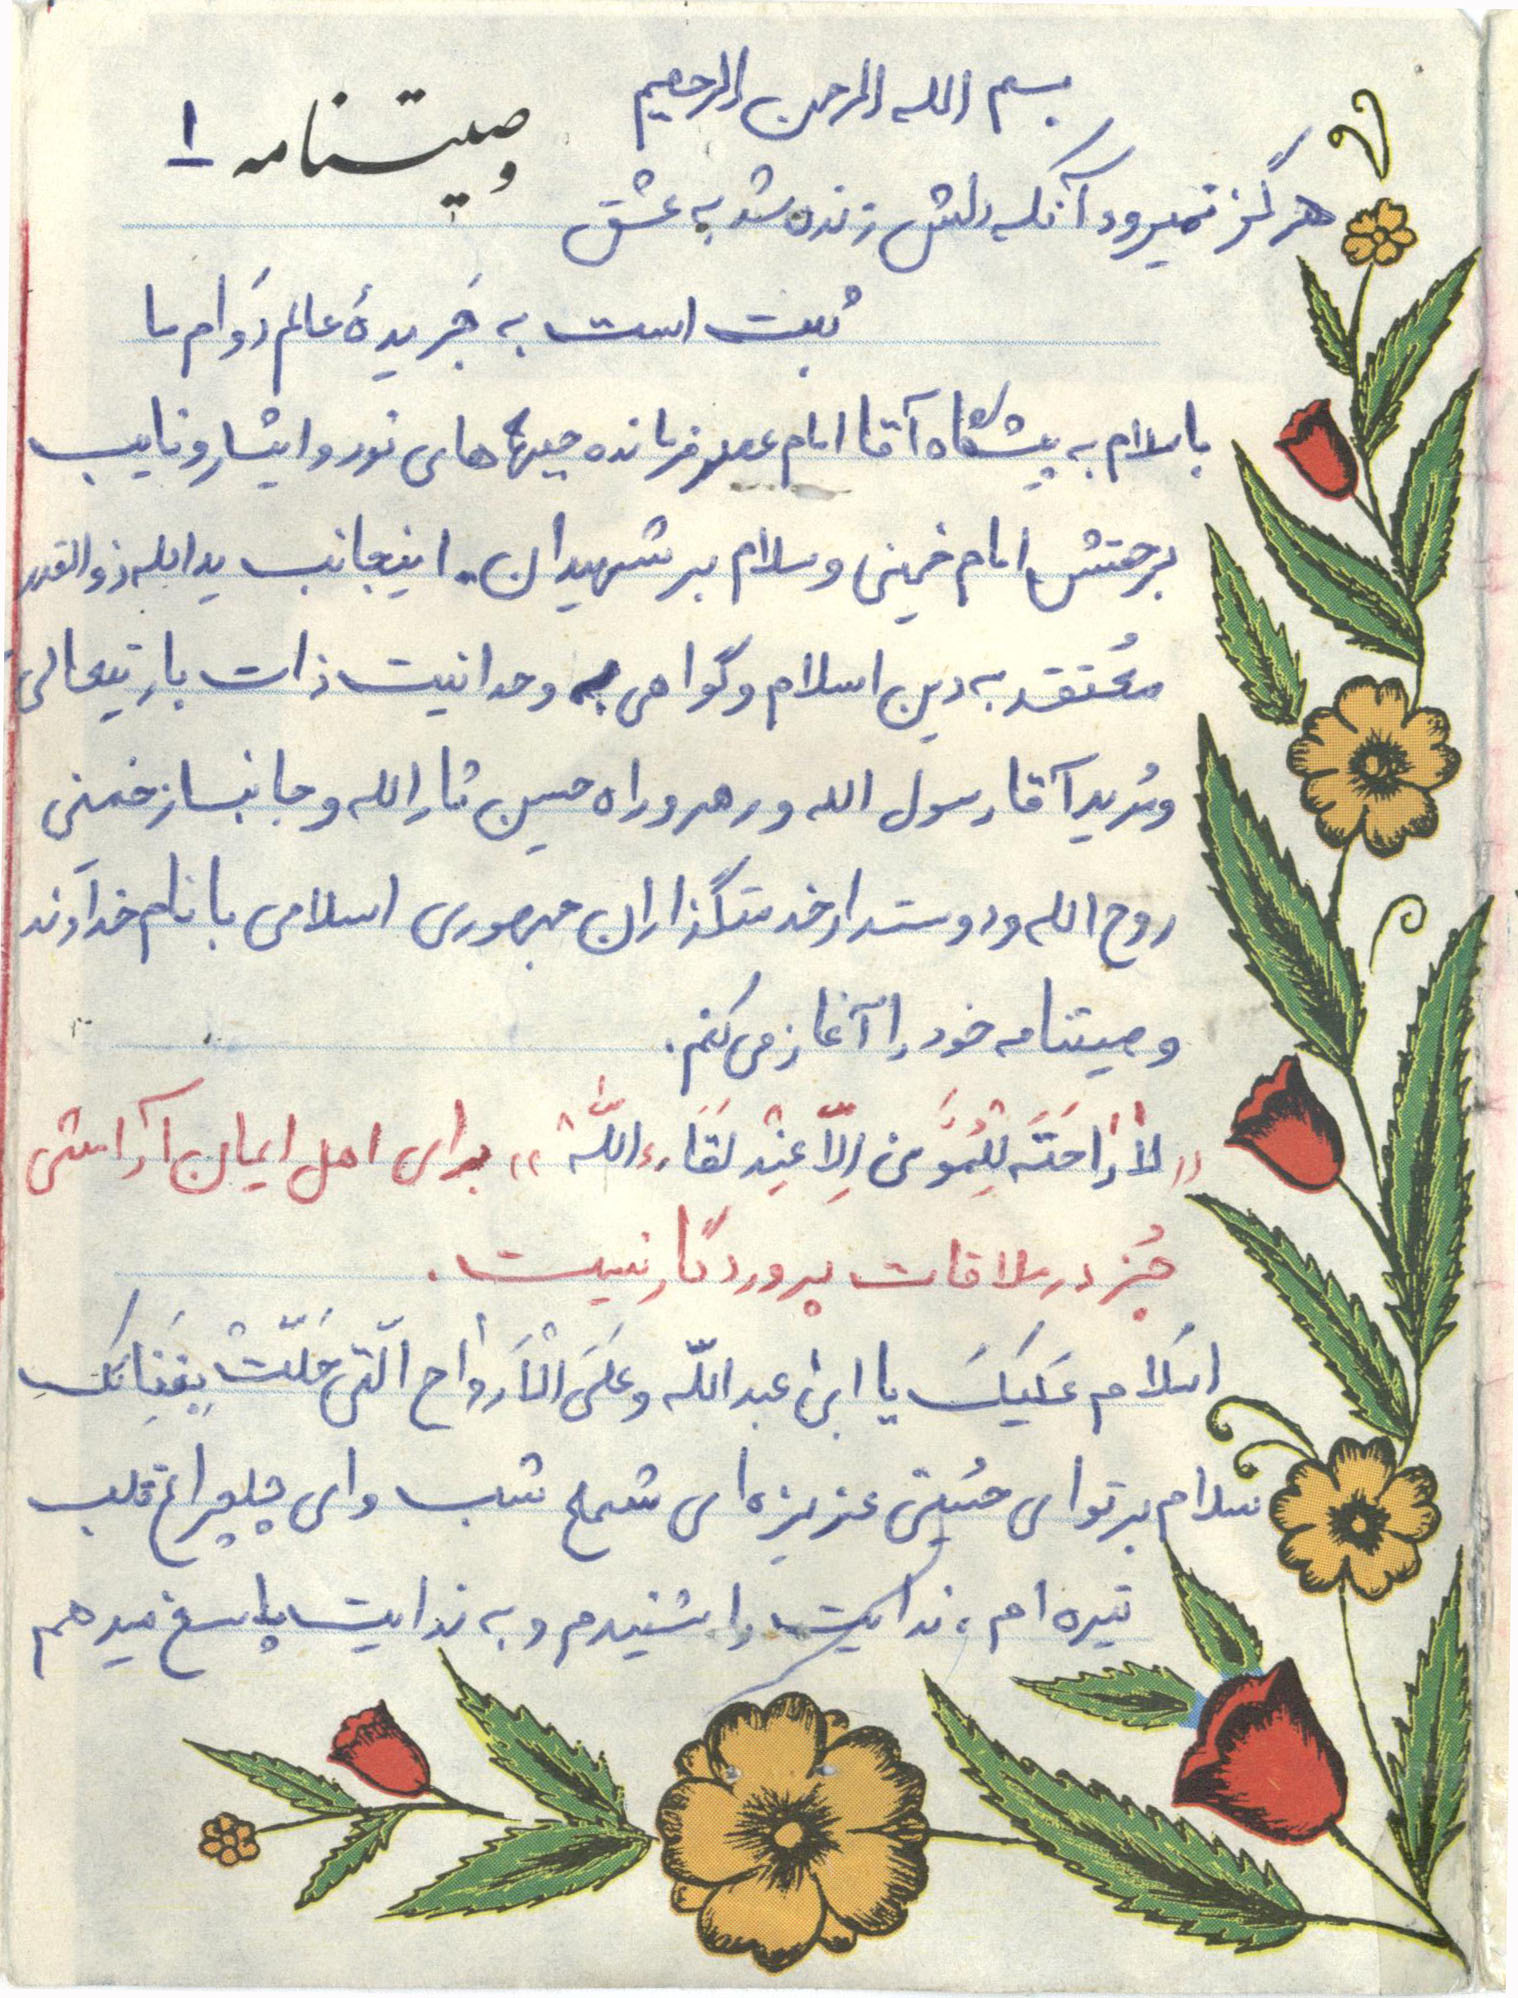 بسم الله الرحمن الرحیم
وصیتنامه ۱
هرگز نمیرود آنکه دلش زنده شد به عشق
ثبت است به جَریدهٔ عالم دَوام ما
با سلام به پیشگاه آقا امام عصر فرمانده جبهه‌های نور و ایثار و نایب
برحقش امام خمینی و سلام بر شهیدان. اینجانب یدالله ذوالقدر
مُعتقد به دین اسلام و گواهی به وحدانیت ذات باریتعالی
و مُرید آقا رسول الله و رهرو راه حسین ثارالله و جانباز خمینی
روح الله و دوستدار خدمتگذاران جمهوری اسلامی با نام خداوند
وصیتنامه خود را آغاز می‌کنم.
«لأرٰاحَتَه لِلْمُؤمن اِلاّ عِنْدَ لقَاءِ اللّه» برای اهل ایمان آرامشی
جُز در ملاقات پروردگار نیست.
اسَلام عَلیکَ یا ابنٰ عبداللّه وعَلَی الْأَرواح الّتی حَلّتْ بِفَنائکَ
سلام بر تو ای حُسینِ عزیز، ای شمع شب و ای چلچراغ قلب
تیره ام، ندایت را شنیدم و به ندایت پاسخ میدهم